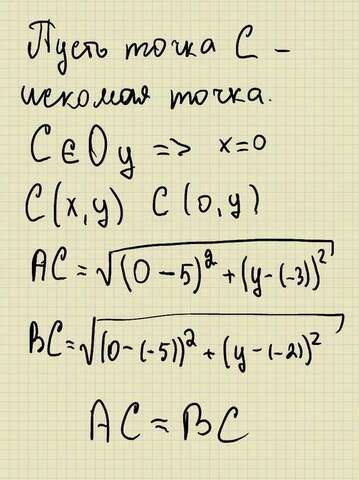 Пусть точка C –
искомая точка.
C ∈ Oy => x=0
C(x,y) C(0,y)
AC=√(0-5)²+(y-(-3))²
BC=√(0-(-5))²+(y-(-2))²
AC=BC